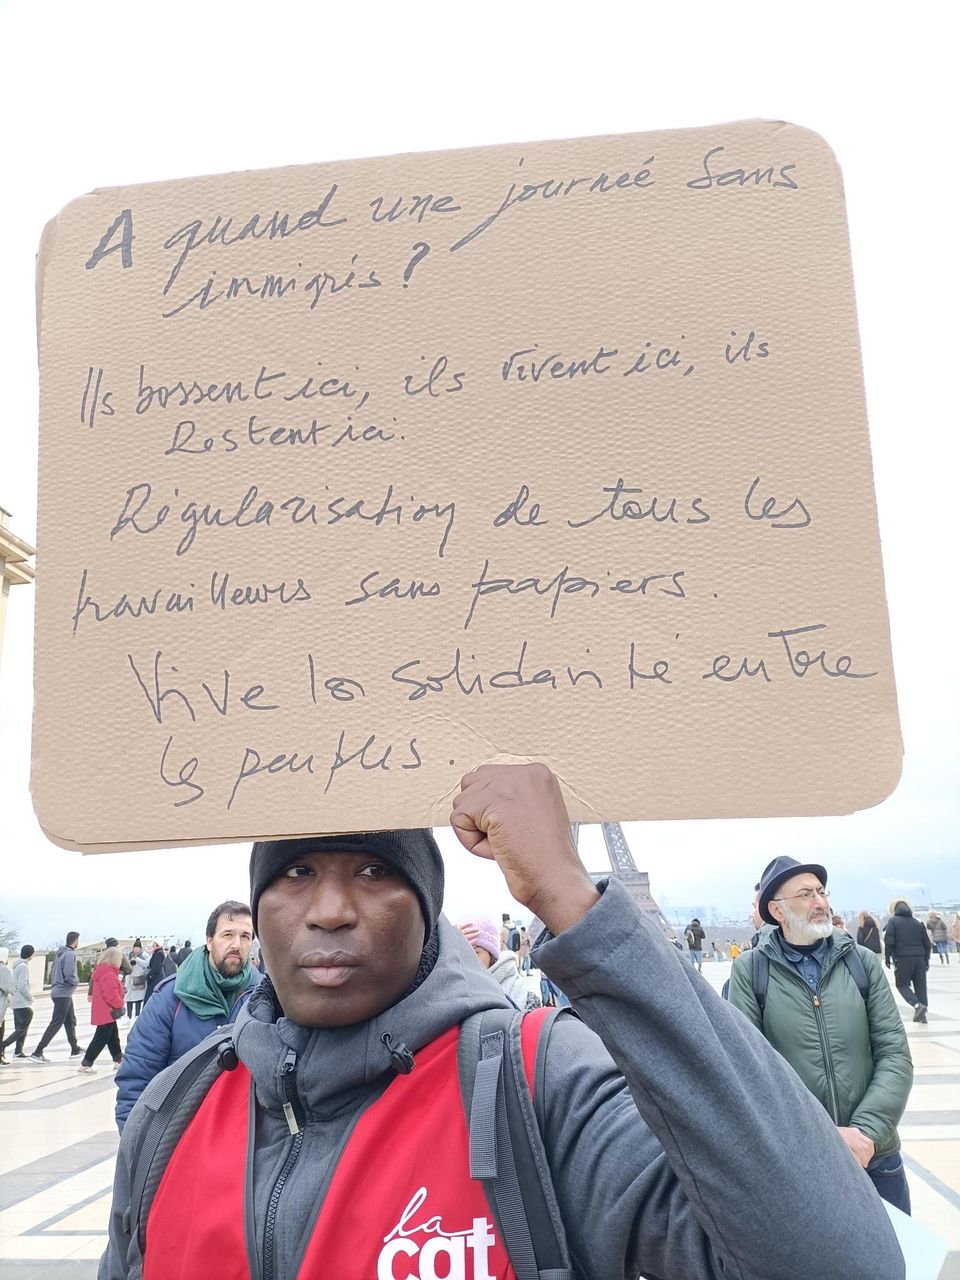 A quand une journeé sans
immigrés ?
Ils bossent ici, ils vivent ici, ils
Restent ici.
Régularisation de tous les
travailleurs sans papiers.
Vive la solidarité entre
les peuples.
la
cgt